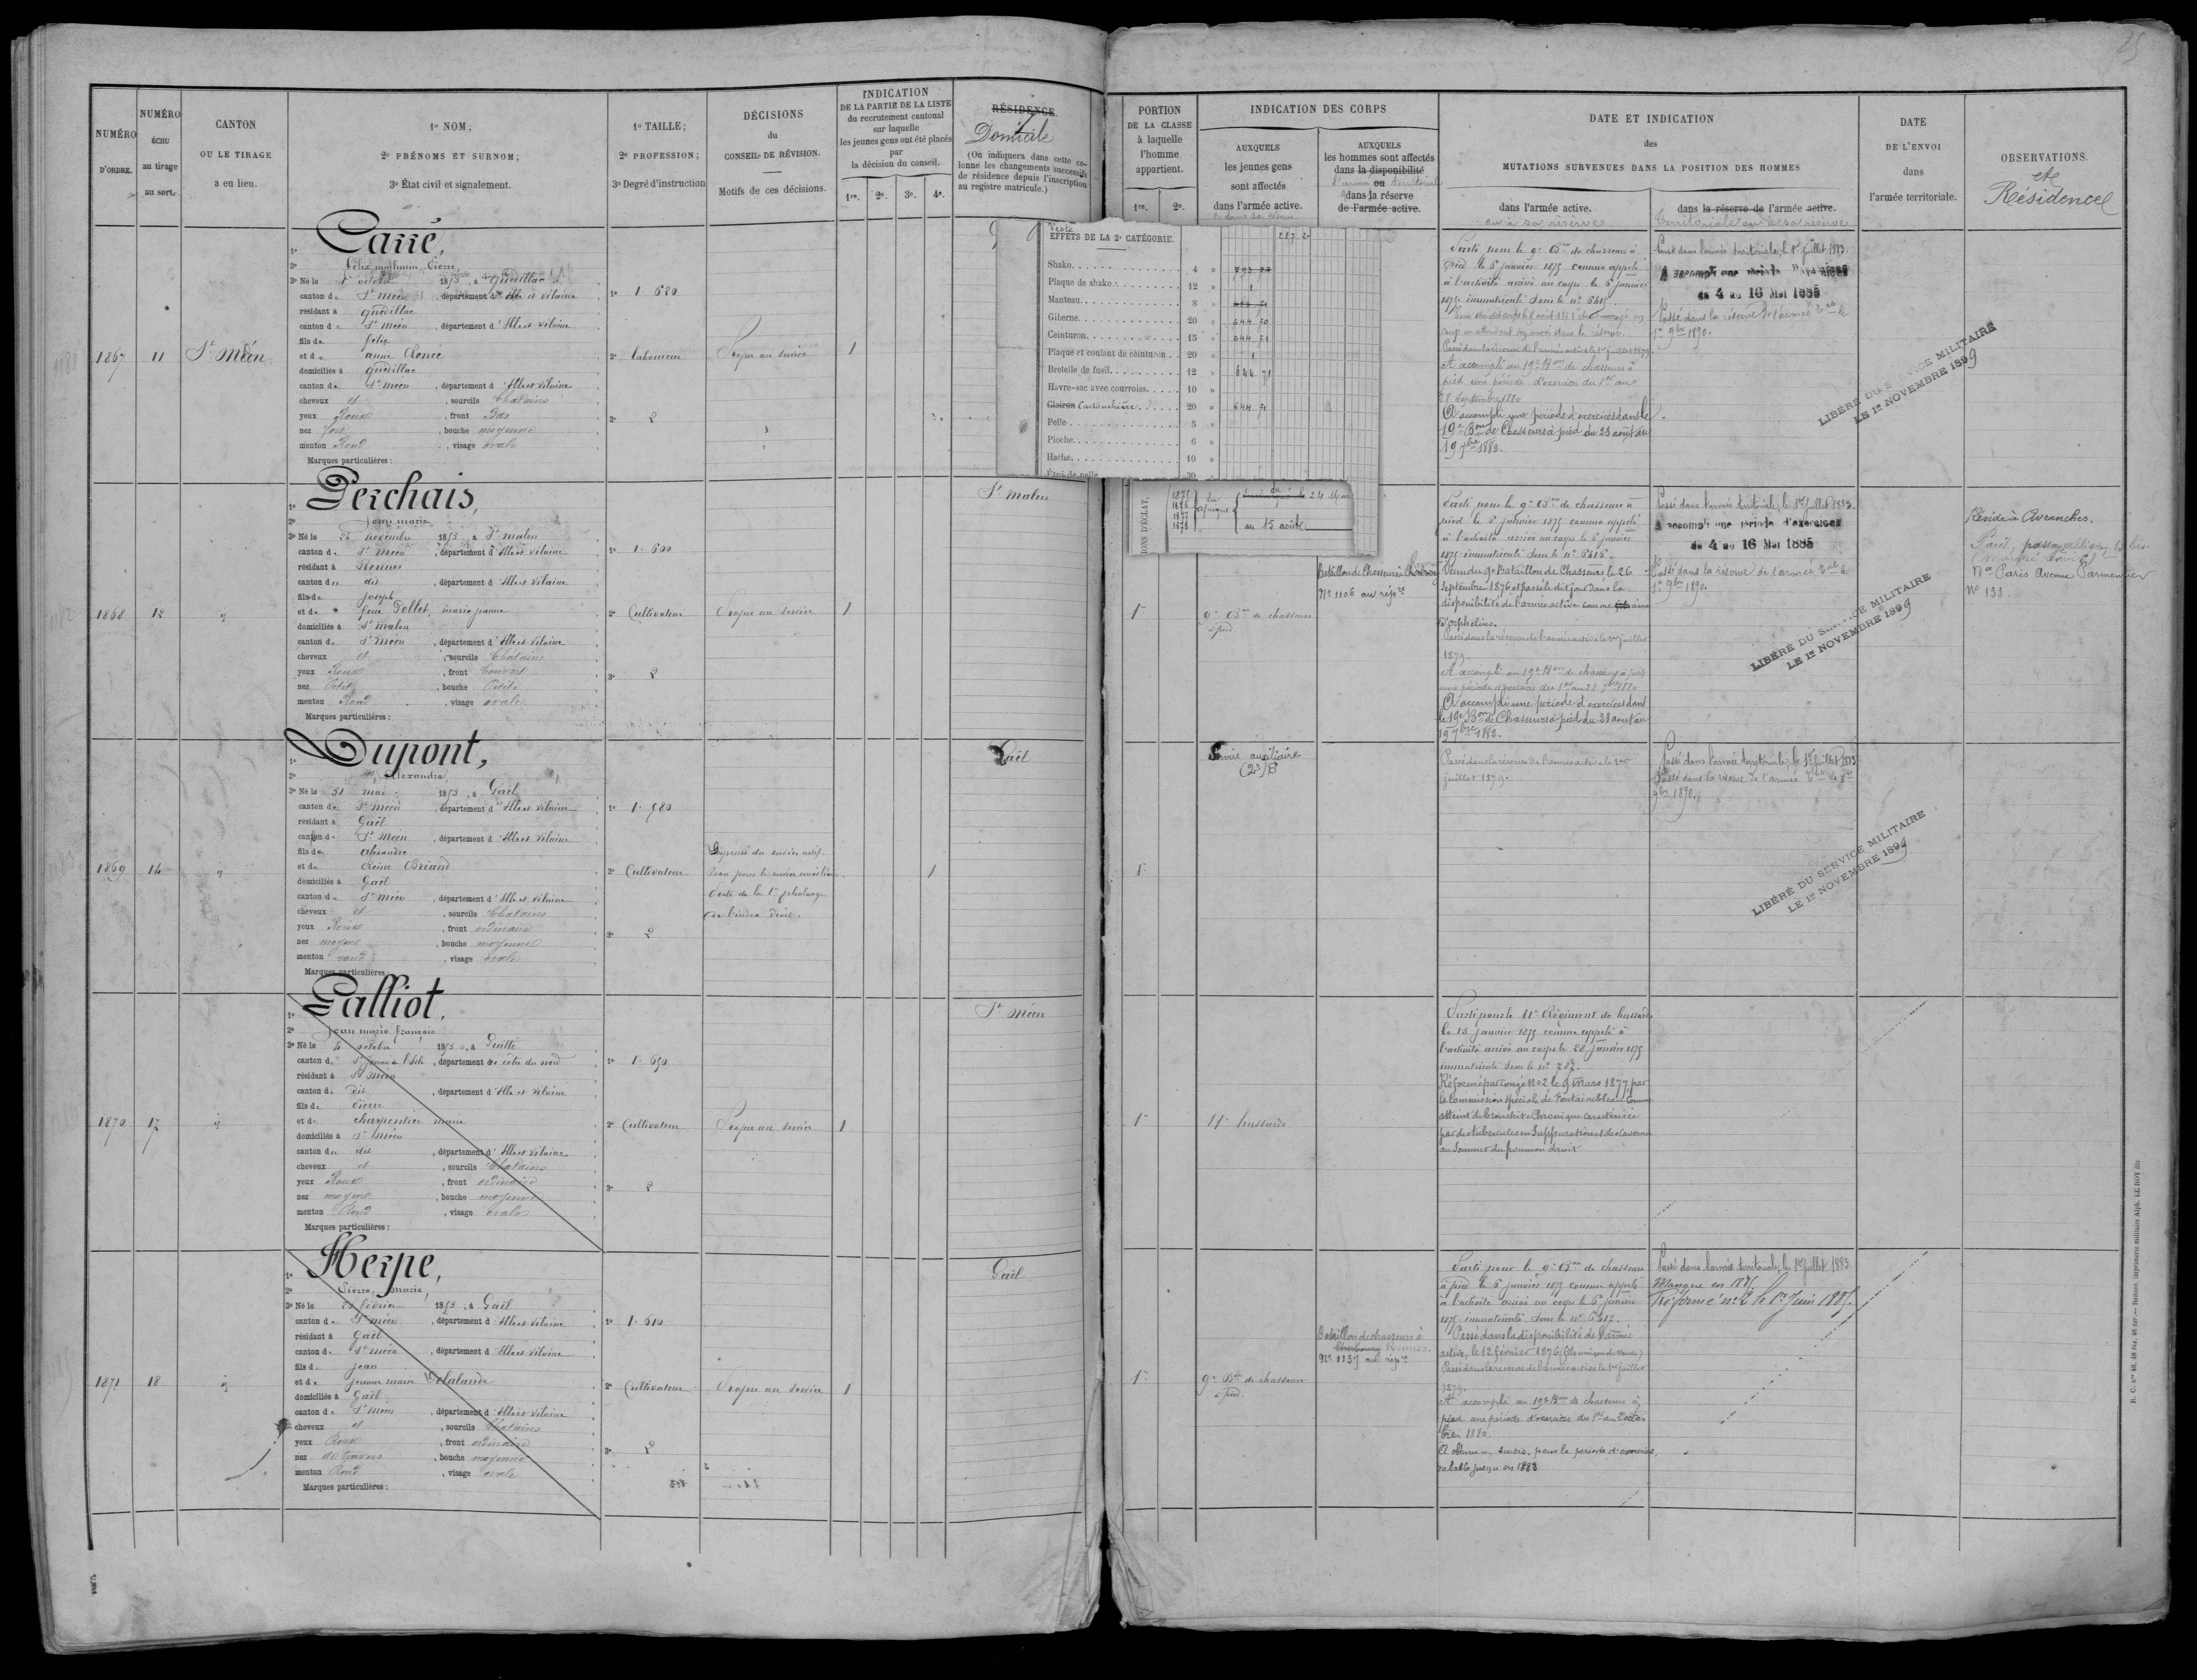 NUMÉRO
D'ORDRE.
NUMÉRO
ÉCHU
au tirage
au sort.
CANTON
OU LE TIRAGE
a eu lieu.
1º NOM;
2º PRÉNOMS ET SURNOM;
3º État civil et signalement.
1º TAILLE;
2º PROFESSION;
3º Degré d'instruction
DÉCISIONS
du
CONSEIL DE RÉVISION.
Motifs de ces décisions.
INDICATION
DE LA PARTIE DE LA LISTE
du recrutement cantonal
sur laquelle
les jeunes gens ont été placés
par
la décision du conseil.
1re. 2e. 3e. 4e.
RÉSIDENCE.
Domicile
(On indiquera dans cette co-
lonne les changements successifs
de résidence depuis l'inscription
au registre matricule.)
1867 11 St Méen
Carré,
2º Félix mathurin Pierre
3º Né le octobre 1853, à Quédillac
canton de St Méen, département d'Ille et Vilaine
résidant à Quédillac
canton de St Méen, département d'Ille et Vilaine
fils de felix
et de anne
domiciliés à Quédillac
canton de St Méen, département d'Ille et Vilaine
cheveux et, sourcils Chatains
yeux Roux, front Bas
nez fort, bouche moyenne
menton Rond, visage ovale
Marques particulières :
1º 1.680
2º Laboureur
3º 2
Propre au service
1
1868 12 id
Perchais,
2º Jean marie
3º Né le 26 novembre 1853, à St malon
canton de St Méen, département d'Ille et Vilaine
résidant à Rennes
canton du dit, département d'Ille et Vilaine
fils de Joseph
et de feue Dollet, marie jeanne
domiciliés à St malon
canton de St Méen, département d'Ille et Vilaine
cheveux et, sourcils Chatains
yeux Roux, front Couvert
nez Petit, bouche Petite
menton Rond, visage ovale
Marques particulières :
1º 1.600
2º Cultivateur
3º 2
Propre au service
1
St malon
1869 14 id
Dupont,
2º Alexandre
3º Né le 31 mai 1853, à Gaël
canton de St Méen, département d'Ille et Vilaine
résidant à Gaël
canton de St Méen, département d'Ille et Vilaine
fils de Alexandre
et de Reine Briand
domiciliés à Gaël
canton de St Méen, département d'Ille et Vilaine
cheveux et, sourcils Chatains
yeux Roux, front ordinaire
nez moyen, bouche moyenne
menton rond, visage ovale
Marques particulières :
1º 1.580
2º Cultivateur
3º 2
Dispensé du service actif.
Bon pour le service auxiliaire
Perte de la 1re phalange
de l'index droit.
1
Gaël
1870 17 id
Galliot,
2º Jean marie françois
3º Né le 4 octobre 1853, à Guitté
canton de St Jouan de l'Isle, département des côtes du nord
résidant à St Méen
canton du dit, département d'Ille et Vilaine
fils de Pierre
et de charpentier marie
domiciliés à St Méen
canton du dit, département d'Ille et Vilaine
cheveux et, sourcils Chatains
yeux Roux, front ordinaire
nez moyen, bouche moyenne
menton Rond, visage ovale
Marques particulières :
1º 1.650
2º Cultivateur
3º 2
Propre au service
1
St Méen
1871 18 id
Herpe,
2º Pierre marie
3º Né le février 1853, à Gaël
canton de St Méen, département d'Ille et Vilaine
résidant à Gaël
canton de St Méen, département d'Ille et Vilaine
fils de Jean
et de jeanne marie Delalande
domiciliés à Gaël
canton de St Méen, département d'Ille et Vilaine
cheveux et, sourcils Chatains
yeux Roux, front ordinaire
nez de travers, bouche moyenne
menton Rond, visage ovale
Marques particulières :
1º 1.610
2º Cultivateur
3º 2
Propre au service
1
Gaël
Veste 287 2
EFFETS DE LA 2e CATÉGORIE.
Shako 4 » 793 74
Plaque de shako 12 » 1
Manteau 8 »
Giberne 20 » 644 70
Ceinturon 15 » 644 71
Plaque et coulant de ceinturon 20 » 1
Bretelle de fusil 12 » 644 71
Havre-sac avec courroies 10 »
Clairon Cartouchière 20 » 644 71
Pelle 5 »
Pioche 6 »
Hache 10 »
Étui de pelle 20
IONS D'ÉCLAT,
1875
1876
1877
1878
En
afrique
du
24 Mai
au 15 août
PORTION
DE LA CLASSE
à laquelle
l'homme
appartient.
1re. 2e.
INDICATION DES CORPS
AUXQUELS
les jeunes gens
sont affectés
dans l'armée active.
AUXQUELS
les hommes sont affectés
dans la disponibilité
ou
l'armée territoriale
dans la réserve
de l'armée active.
DATE ET INDICATION
des
MUTATIONS SURVENUES DANS LA POSITION DES HOMMES
dans l'armée active.
ou à sa réserve
dans la réserve de l'armée active.
Territoriale ou à sa réserve
DATE
DE L'ENVOI
dans
l'armée territoriale.
OBSERVATIONS.
et
Résidence
Parti pour le 9e Bon de chasseurs à
pied le 5 janvier 1875 comme appelé
à l'activité arrivé au corps le 6 janvier
1875 immatriculé sous le nº 6415
congé en attendant son envoi dans la réserve.
Passé dans la réserve de l'armée active le 1er juillet 1879.
A accompli au 19e Bon de chasseurs à
pied une période d'exercices du 1er au
28 Septembre 1880
A accompli une période d'exercices dans le
19e Bon de Chasseurs à pied du 23 août au
19 7bre 1883.
Passé dans l'armée territoriale, le 1er juillet 1883.
A accompli une période d'exercices
du 4 au 16 Mai 1885
Passé dans la réserve de l'armée Tale le
1er 9bre 1890.
LIBÉRÉ DU SERVICE MILITAIRE
LE 1er NOVEMBRE 1899
1re
9e Bon de chasseurs
à pied
Bataillon de Chasseurs à
Nº 1106 au répre
Parti pour le 9e Bon de chasseurs à
pied le 5 janvier 1875 comme appelé
à l'activité arrivé au corps le 6 janvier
1875 immatriculé sous le nº 6416.
Venu du 9e Bataillon de Chasseurs le 26
Septembre 1876 et passé le dit jour dans la
disponibilité de l'armée active comme fils aîné
d'orphelins.
Passé dans la réserve de l'armée active le 1er juillet
1879.
A accompli au 19e Bon de chasseurs à pied
une période d'exercices du 1er au 28 7bre 1880
A accompli une période d'exercices dans
le 19e Bon de Chasseurs à pied du 23 août au
19 7bre 1883.
Passé dans l'armée territoriale, le 1er juillet 1883.
A accompli une période d'exercices
du 4 au 16 Mai 1885
Passé dans la réserve de l'armée Tale le
1er 9bre 1890.
LIBÉRÉ DU SERVICE MILITAIRE
LE 1er NOVEMBRE 1899
Réside à Avranches.
Paris, passage
Paris Avenue Parmentier
Nº 133
1re
Service auxiliaire
Passé dans la réserve de l'armée active le 1er
juillet 1879.
Passé dans l'armée territoriale, le 1er juillet 1883
Passé dans la réserve de l'armée Tale le 1er
9bre 1890.
LIBÉRÉ DU SERVICE MILITAIRE
LE 1er NOVEMBRE 1899
1re
11e hussards
Parti pour le 11e Régiment de hussards
le 13 janvier 1875 comme appelé à
l'activité arrivé au corps le 28 janvier 1875
immatriculé sous le nº 787.
Réformé par Congé Nº 2 le 9 Mars 1877 par
la Commission Spéciale de Fontainebleau Comme
atteint de bronchite Chronique caractérisée
par des tubercules en Suppuration et des Cavernes
au Sommet du poumon droit
1re
9e Bon de chasseurs
à pied
Bataillon de chasseurs à
Cherbourg Rennes
Nº 1137 au répre
Parti pour le 9e Bon de chasseurs
à pied le 5 janvier 1875 comme appelé
à l'activité arrivé au corps le 6 janvier
1875 immatriculé sous le nº 6417.
Passé dans la disponibilité de l'armée
active, le 12 février 1876 (fils unique de veuve)
Passé dans la réserve de l'armée active le 1er juillet
1879.
A accompli au 19e Bon de chasseurs à
pied une période d'exercices du
bre 1880.
A obtenu un sursis, pour la période d'exercices,
valable jusqu'en 1883
Passé dans l'armée territoriale, le 1er juillet 1883
Manque en 1885
Réformé nº 2 le 1er Juin 1885.
R. C. nos 48, 48 bis, 48 ter.— Rennes, imprimerie militaire Alph. LE ROY fils